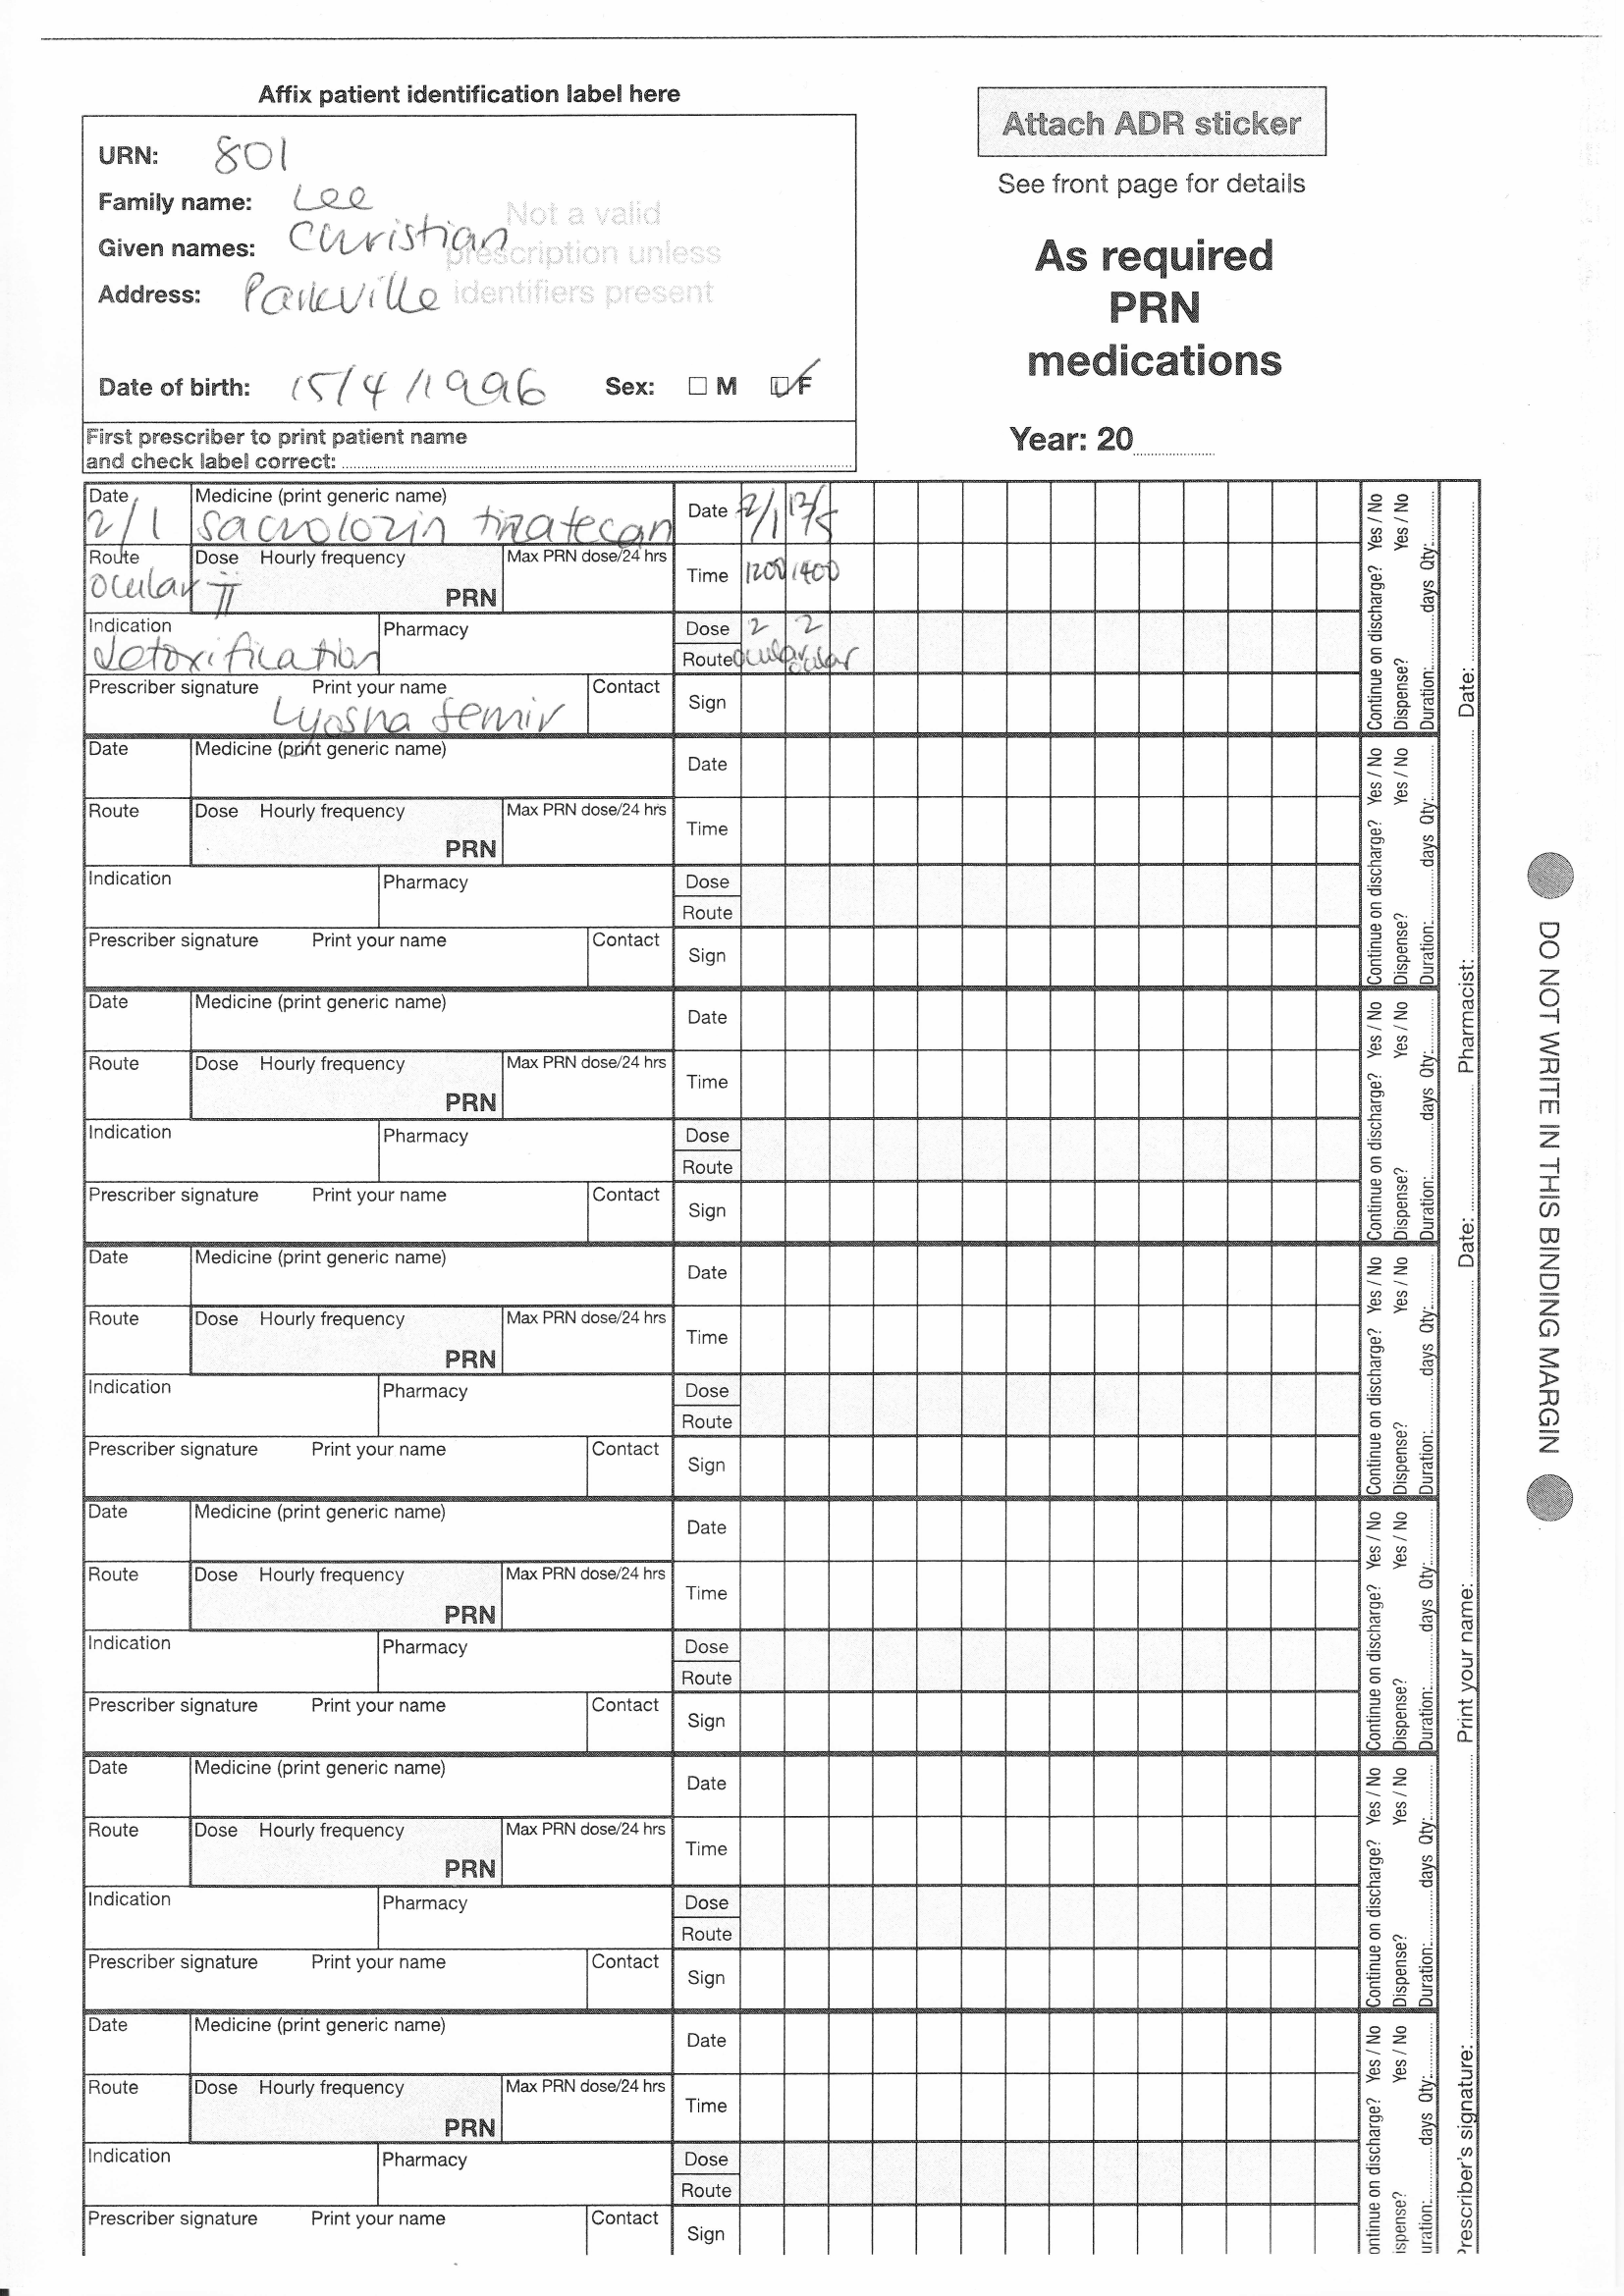 Affix patient identification label here
URN: 801
Family name: Lee
Given names: Christian
Address: Parkville
Not a valid
prescription unless
identifiers present
Date of birth: 15/4/1996 Sex: M F
First prescriber to print patient name
and check label correct:
Attach ADR sticker
See front page for details
As required
PRN
medications
Year: 20
Date 2/1 Medicine (print generic name) sacrolozin tinatecan
Route ocular Dose II Hourly frequency PRN Max PRN dose/24 hrs
Indication detoxification Pharmacy
Prescriber signature Print your name Lyosha Semir Contact
Date 2/1
Time 1200 1400
Dose 2 2
Route ocular ocular
Sign
Continue on discharge? Yes / No
Dispense? Yes / No
Duration: days Qty:
Date Medicine (print generic name)
Route Dose Hourly frequency PRN Max PRN dose/24 hrs
Indication Pharmacy
Prescriber signature Print your name Contact
Date
Time
Dose
Route
Sign
Continue on discharge? Yes / No
Dispense? Yes / No
Duration: days Qty:
Date Medicine (print generic name)
Route Dose Hourly frequency PRN Max PRN dose/24 hrs
Indication Pharmacy
Prescriber signature Print your name Contact
Date
Time
Dose
Route
Sign
Continue on discharge? Yes / No
Dispense? Yes / No
Duration: days Qty:
Date Medicine (print generic name)
Route Dose Hourly frequency PRN Max PRN dose/24 hrs
Indication Pharmacy
Prescriber signature Print your name Contact
Date
Time
Dose
Route
Sign
Continue on discharge? Yes / No
Dispense? Yes / No
Duration: days Qty:
Date Medicine (print generic name)
Route Dose Hourly frequency PRN Max PRN dose/24 hrs
Indication Pharmacy
Prescriber signature Print your name Contact
Date
Time
Dose
Route
Sign
Continue on discharge? Yes / No
Dispense? Yes / No
Duration: days Qty:
Date Medicine (print generic name)
Route Dose Hourly frequency PRN Max PRN dose/24 hrs
Indication Pharmacy
Prescriber signature Print your name Contact
Date
Time
Dose
Route
Sign
Continue on discharge? Yes / No
Dispense? Yes / No
Duration: days Qty:
Date Medicine (print generic name)
Route Dose Hourly frequency PRN Max PRN dose/24 hrs
Indication Pharmacy
Prescriber signature Print your name Contact
Date
Time
Dose
Route
Sign
ontinue on discharge? Yes / No
ispense? Yes / No
uration: days Qty:
rescriber's signature: Print your name: Date: Pharmacist: Date:
DO NOT WRITE IN THIS BINDING MARGIN